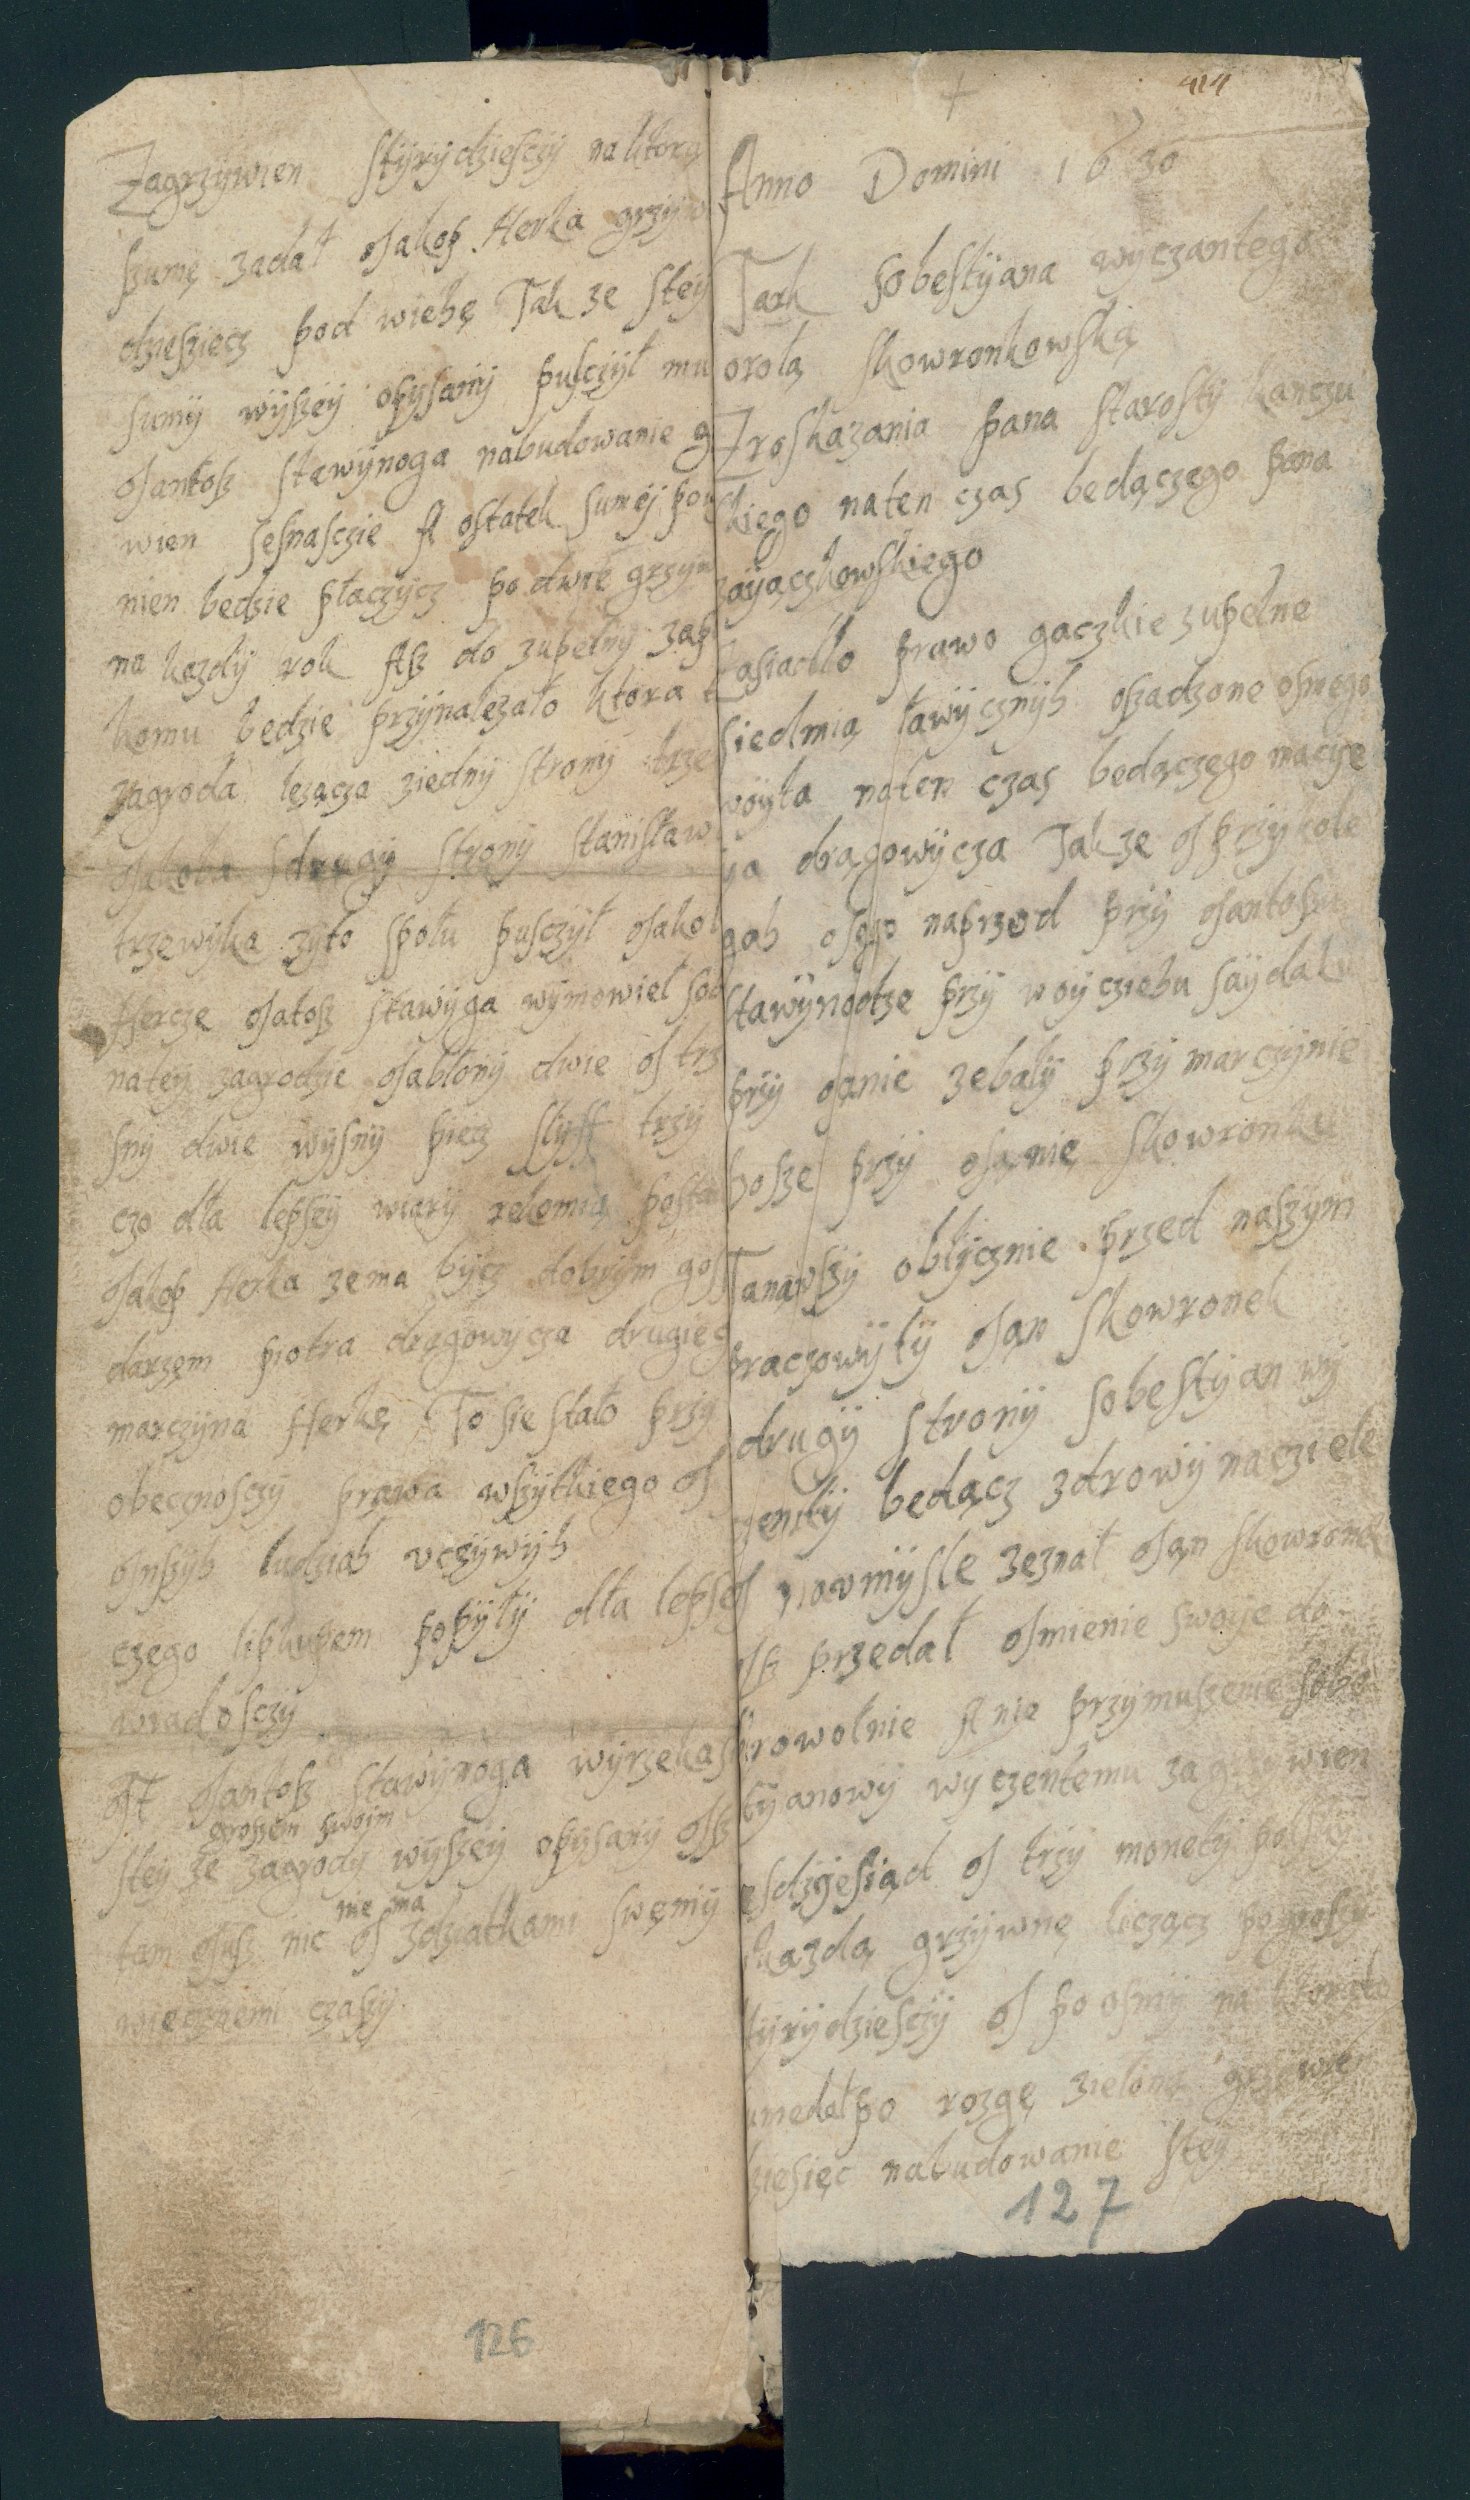 Zagrzywien styrydziesczy naktorą
szumę zadał Jakop Herka grzyw
dziesziecz pod wiehę Tak ze stey
sumy wyszey opysany pusczył mu
Jantosz stawynoga nabudowanie g
wien sesnasczie A ostatek sumey pow
nien bedzie płaczycz po dwie grzyw
na kozdy rok Asz do zupełny zapł
komu bedzie przynalezało ktora t
zagroda lezącza ziedny strony trze
Jakoba sdrugy strony stanisław
trzewyka zyto społu pusczył Jakob
Hercze Jatosz stawyga wymowieł sob
natey zagrodzie Jabłony dwie J trz
sny dwie wysny piecz slyff trzy
czo dla lepsey wiary rekemią posta
Jakop Herka zema bycz dobrym gos
darzem piotra drągowycza drugieg
marczyna Herkę To sie stało przy
obecznosczy prawa wszytkiego J
Jnszyh ludziah vczywyh
czego lipkupem popyly dla lepse
wiadosczy
JT Jantosz stawynoga wyrzeka s
groszem swoim
stey ze zagrody wyszey opysany Jsz
nie ma
tam Jusz nic J zdziatkami swemy
wiecznemi czasy
126
414
Anno Domini 1630
Tark sobestyana wyczantego
orolą skowronkowską
Zroskazania pana starosty kanczu
kiego naten czas bedączego pana
zayączkowskiego
Zasiadło prawo gaczkie zupełne
siedmią ławycznyh oszadzone osmego
woyta naten czas bedączego macije
ja drągowycza Takze J przykole
gah Jego naprzod przy Jantoszu
stawynodze przy woycziehu saydaku
przy Janie zebaly przy marczynie
hosze przy Janie skowronku
Tanąwszy oblycznie przed naszym
praczowyty Jan skowronek
drugy strony sobestyan wy
zenty bedącz zdrowy naczieie
J novmysle zeznał Jan skowronek
Jsz przedał Jmienie swoyje do
browolnie A nie przymuszenie sobe
styanowy wyczentemu zagrzywien
esdzyesiąd J trzy monety polsky
kazdą grzywnę licząc po groszy
styrydziesczy J po osmy naktorą to
umedał po rozgę zieloną grzywie
dziesięc nabudowanie stey
127